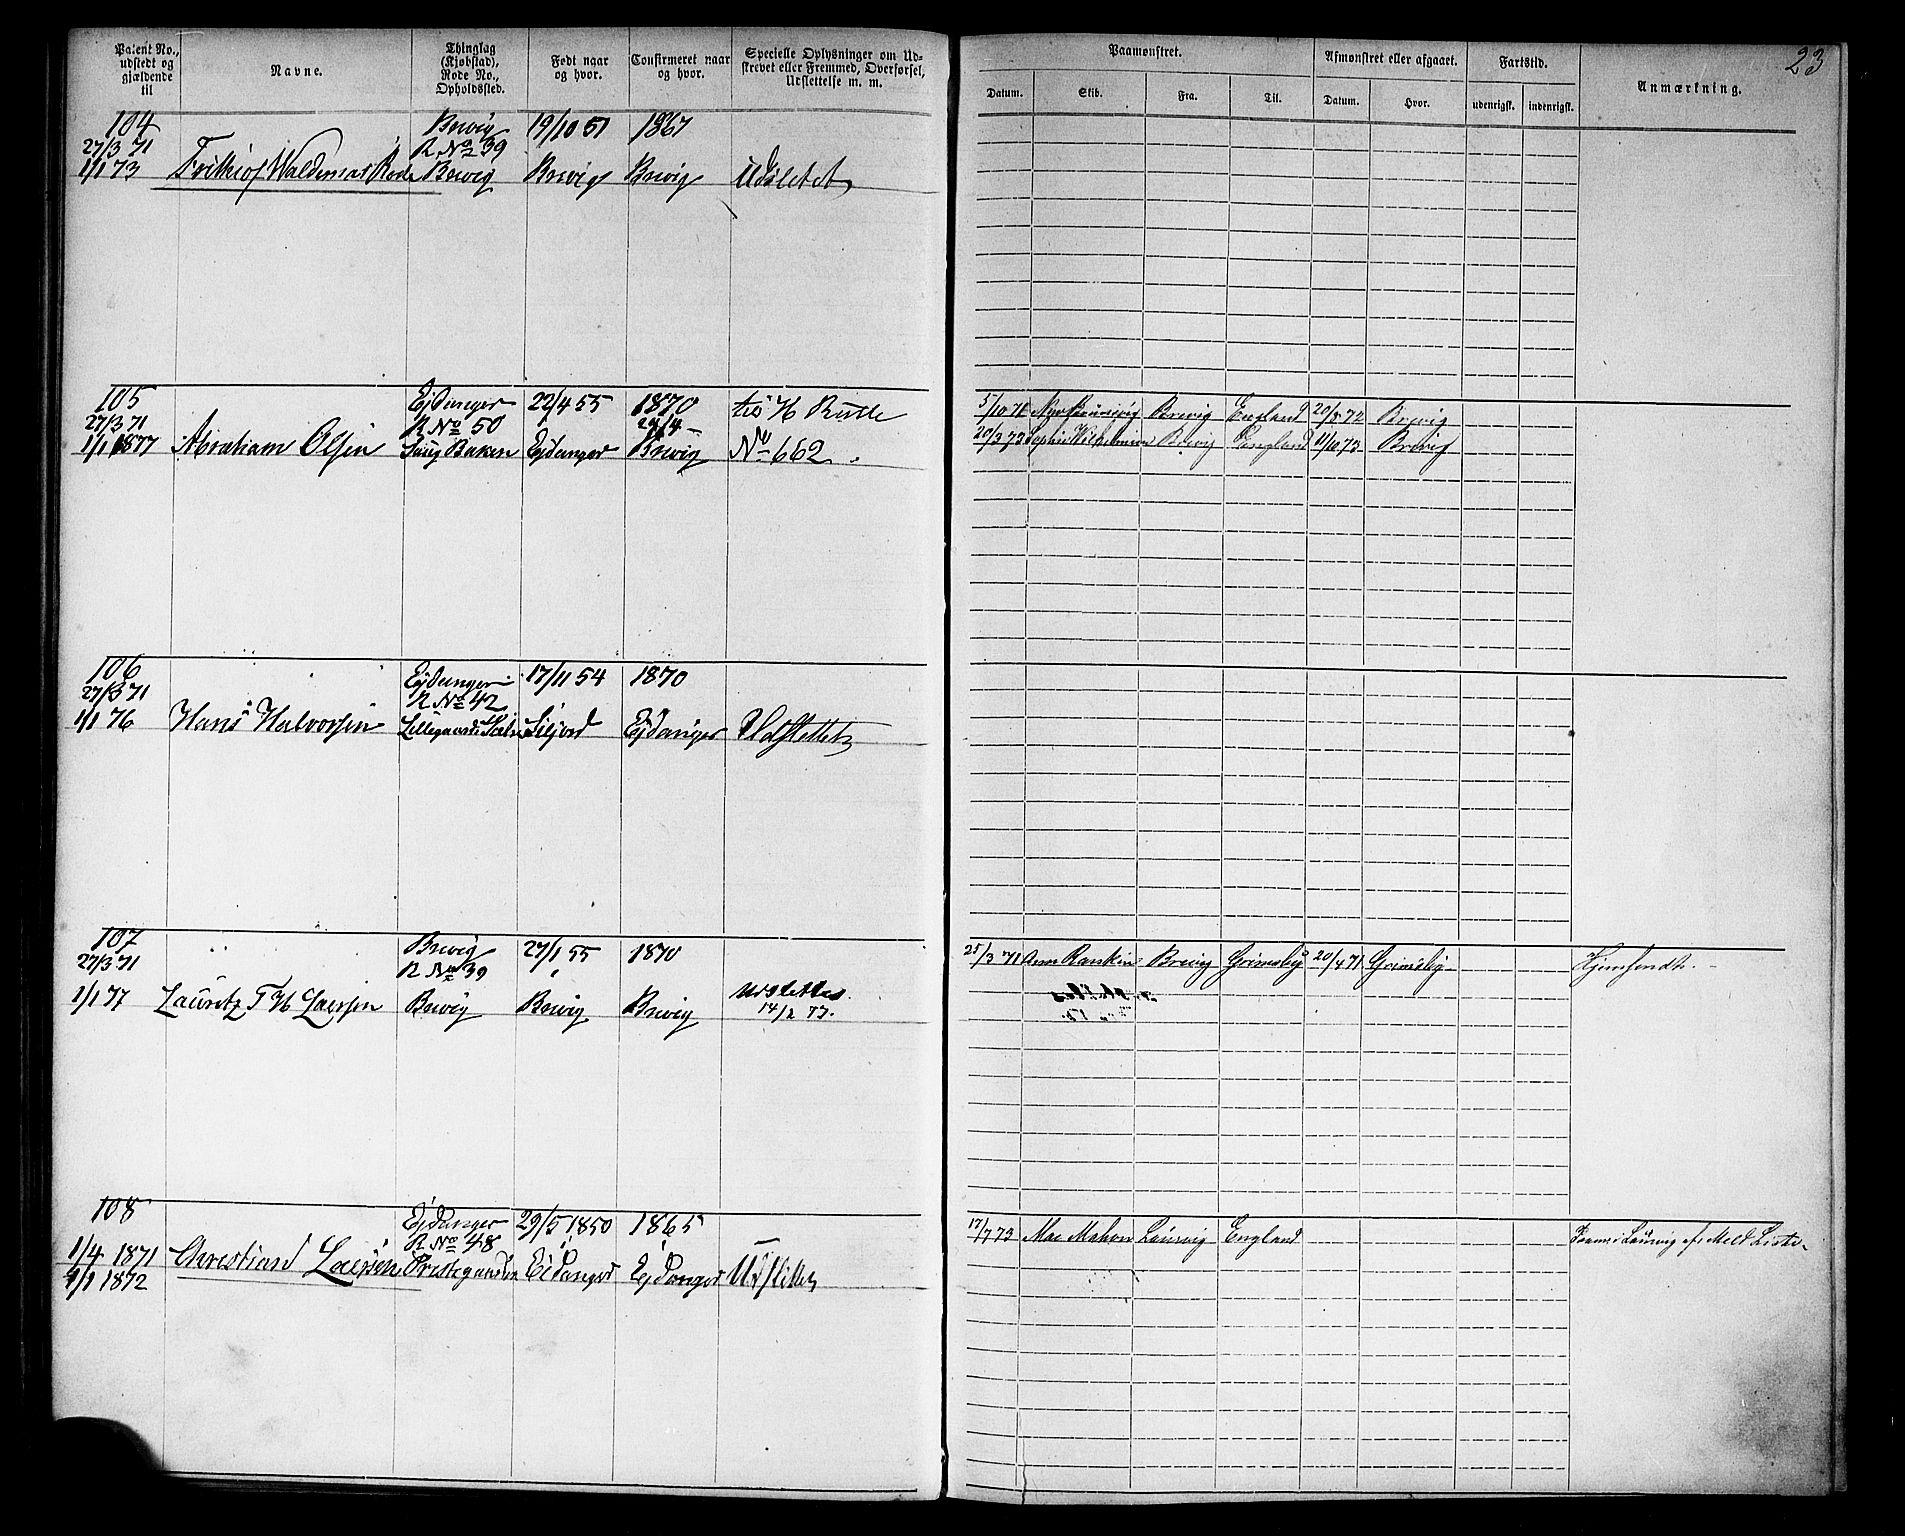 23
Patent No., udstedt og gjældende til
Navne.
Thinglag (Kjøbstad), Rode No., Opholdssted.
Født naar og hvor.
Confirmeret naar og hvor.
Specielle Oplysninger om Udskrevet eller Fremmed, Overførsel, Udslettelse m. m.
Paamønstret.
Afmønstret eller afgaaet.
Fartstid.
Anmærkning.
Datum. Skib. Fra. Til. Datum. Hvor. udenrigsk. indenrigsk.
104 Brevig 19/10 51 1867
27/3 71 R No 39
1/1 73 Frithiof Waldemar Rode Brevig Brevig Brevig Udslettet
105 Ejdanger 22/4 55 1870 til H Rulle 5/10 71 Brevig England 20/8 72 Brevig
27/3 71 R No 50 29/4 -
1/1 1877 Abraham Olsen Bakken Ejdanger Brevig No 662. 20/3 73 Sophie Wilhelmine Brevig England 11/10 73 Brevig
106 Ejdanger 17/11 54 1870
27/3 71 R No 42
1/1 76 Hans Halvorsen Lillegaarden Siljord Ejdanger Udslettet
107 Brevig 27/1 55 1870 25/3 71 Rankin Brevig Grimsby 20/4 71 Grimsby Hjemsendt. -
27/3 71 R No 39
1/1 77 Lauritz T H Larsen Brevig Brevig Brevig Udslettes. 14/2 77.
108 Ejdanger 29/5 1850 1865 17/7 73 Mac Mahon Laurvig England i Laurvig af Meld Liste.
R No 48
1/4 1871 Christian Larsen Prestegaarden Ejdanger Ejdanger Udslettet
1/1 1872